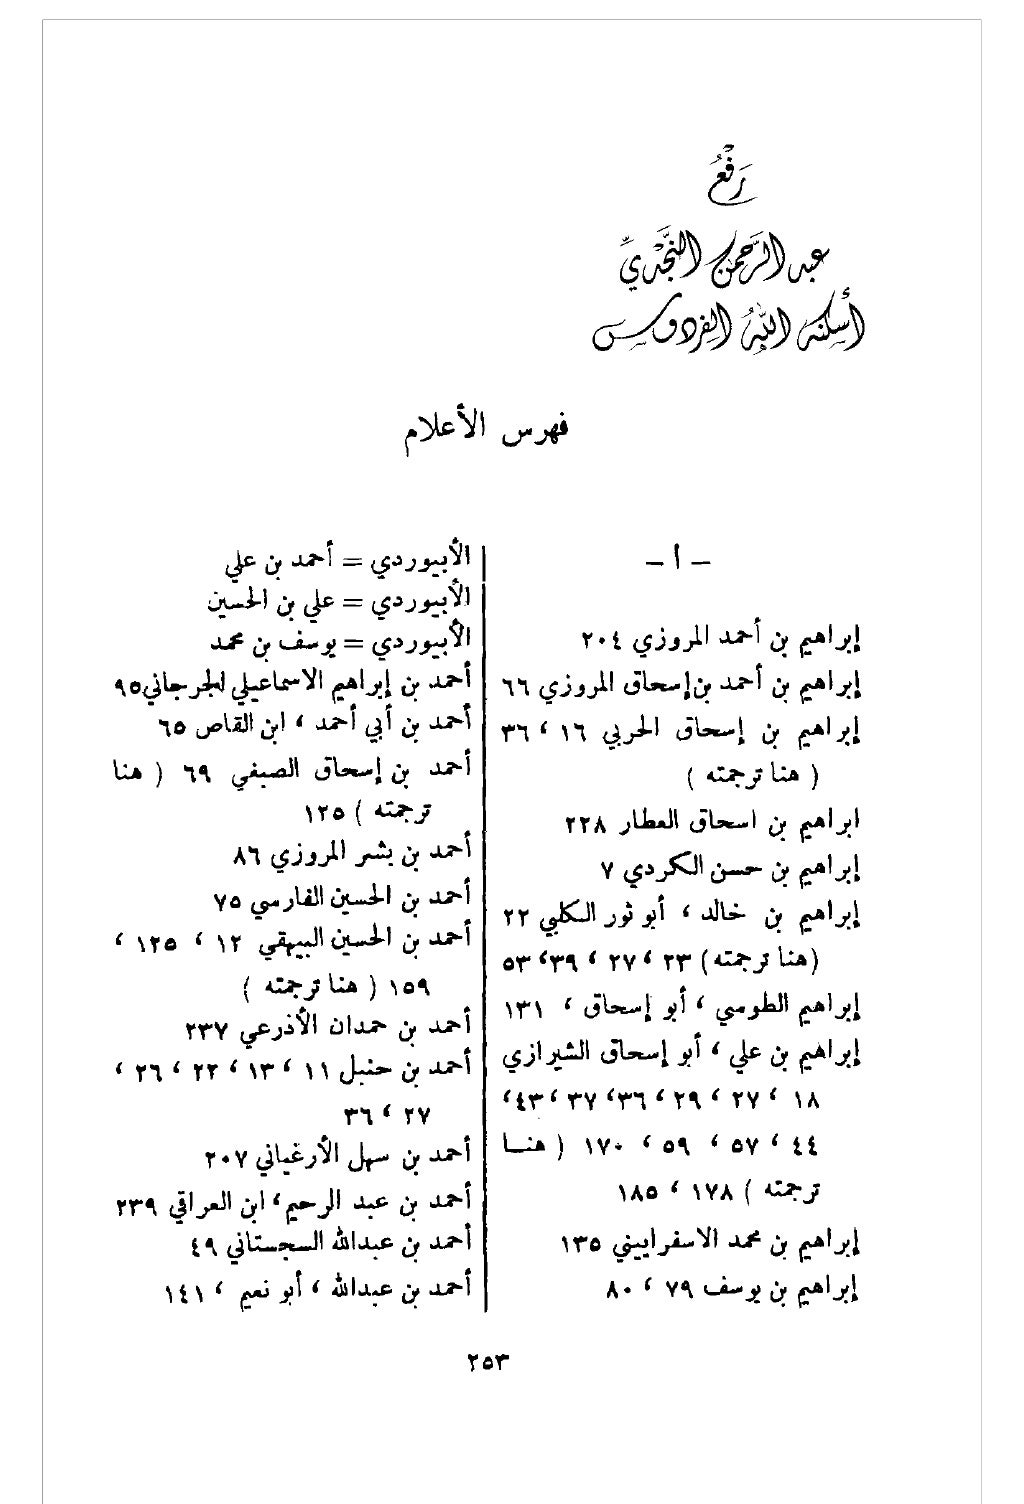 رَفْعُ
عبد الرَّحمن النَّجْدِيِّ
أسكنه اللهُ الفردوس
فهرس الأعلام
– أ –
إبراهيم بن أحمد المروزي ٢٠٤
إبراهيم بن أحمد بن إسحاق المروزي ٦٦
إبراهيم بن إسحاق الحربي ١٦ ، ٣٦
( هنا ترجمته )
ابراهيم بن اسحاق العطار ٢٢٨
إبراهيم بن حسن الكردي ٧
إبراهيم بن خالد ، أبو ثور الكلبي ٢٢
(هنا ترجمته) ٢٣ ، ٢٧ ، ٣٩، ٥٣
إبراهيم الطوسي ، أبو إسحاق ، ١٣١
إبراهيم بن علي ، أبو إسحاق الشيرازي
١٨ ، ٢٧ ، ٢٩ ، ٣٦، ٣٧ ، ٤٣،
٤٤ ، ٥٧ ، ٥٩ ، ١٧٠ ( هنا
ترجمته ) ١٧٨ ، ١٨٥
إبراهيم بن محمد الاسفراييني ١٣٥
إبراهيم بن يوسف ٧٩ ، ٨٠
الأبيوردي = أحمد بن علي
الأبيوردي = علي بن الحسين
الأبيوردي = يوسف بن محمد
أحمد بن إبراهيم الاسماعيلي الجرجاني ٩٥
أحمد بن أبي أحمد ، ابن القاص ٦٥
أحمد بن إسحاق الصبغي ٦٩ ( هنا
ترجمته ) ١٢٥
أحمد بن بشر المروزي ٨٦
أحمد بن الحسين الفارسي ٧٥
أحمد بن الحسين البيهقي ١٢ ، ١٢٥ ،
١٥٩ ( هنا ترجمته )
أحمد بن حمدان الأذرعي ٢٣٧
أحمد بن حنبل ١١ ، ١٣ ، ٢٢ ، ٢٦ ،
٢٧ ، ٣٦
أحمد بن سهل الأرغياني ٢٠٧
أحمد بن عبد الرحيم، ابن العراقي ٢٣٩
أحمد بن عبدالله السجستاني ٤٩
أحمد بن عبدالله ، أبو نعيم ، ١٤١
٢٥٣